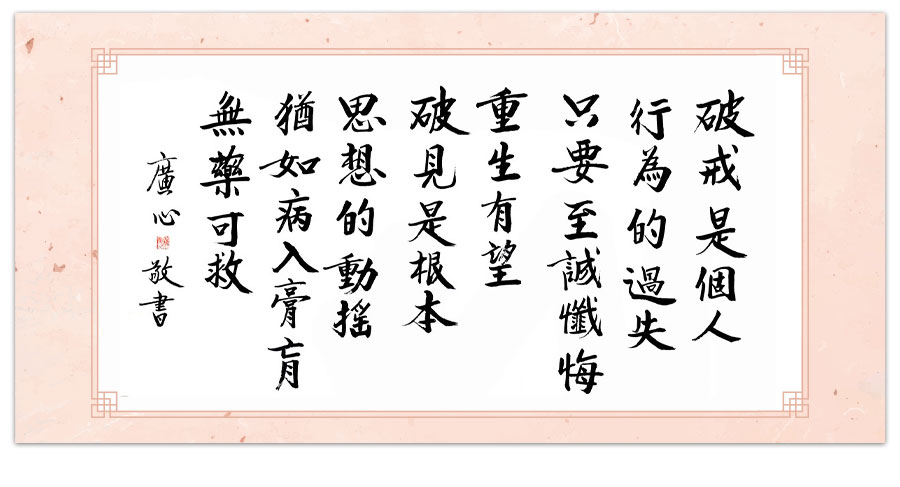 破戒是個人
行為的過失
只要至誠懺悔
重生有望
破見是根本
思想的動搖
猶如病入膏肓
無藥可救
廣心敬書